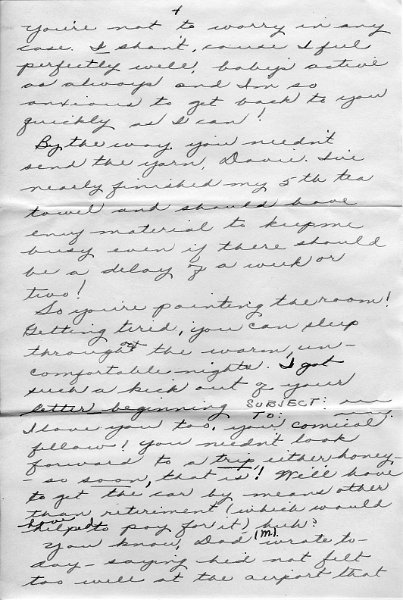 4
you're not to worry in any
case. I shan't, cause I feel
perfectly well, baby's active
as always and I'm so
anxious to get back to you
quickly as I can!
By the way, you needn't
send the yarn, Davie. I've
nearly finished my 5th tea
towel and should have
enuy material to keep me
busy even if there should
be a delay of a week or
two!
So you're painting the room!
Getting tired, you can sleep
throughout the warm, un-
comfortable nights. I got
such a kick out of your
letter beginning SUBJECT:
TO:
I love you too, you comical
fellow! You needn't look
forward to a trip either honey-
- so soon, that is! We'll have
to get the car by means other
than retirement (which would
have helped to pay for it) huh?
You know, Dad (M). wrote to-
day - saying he'd not felt
too well at the airport that